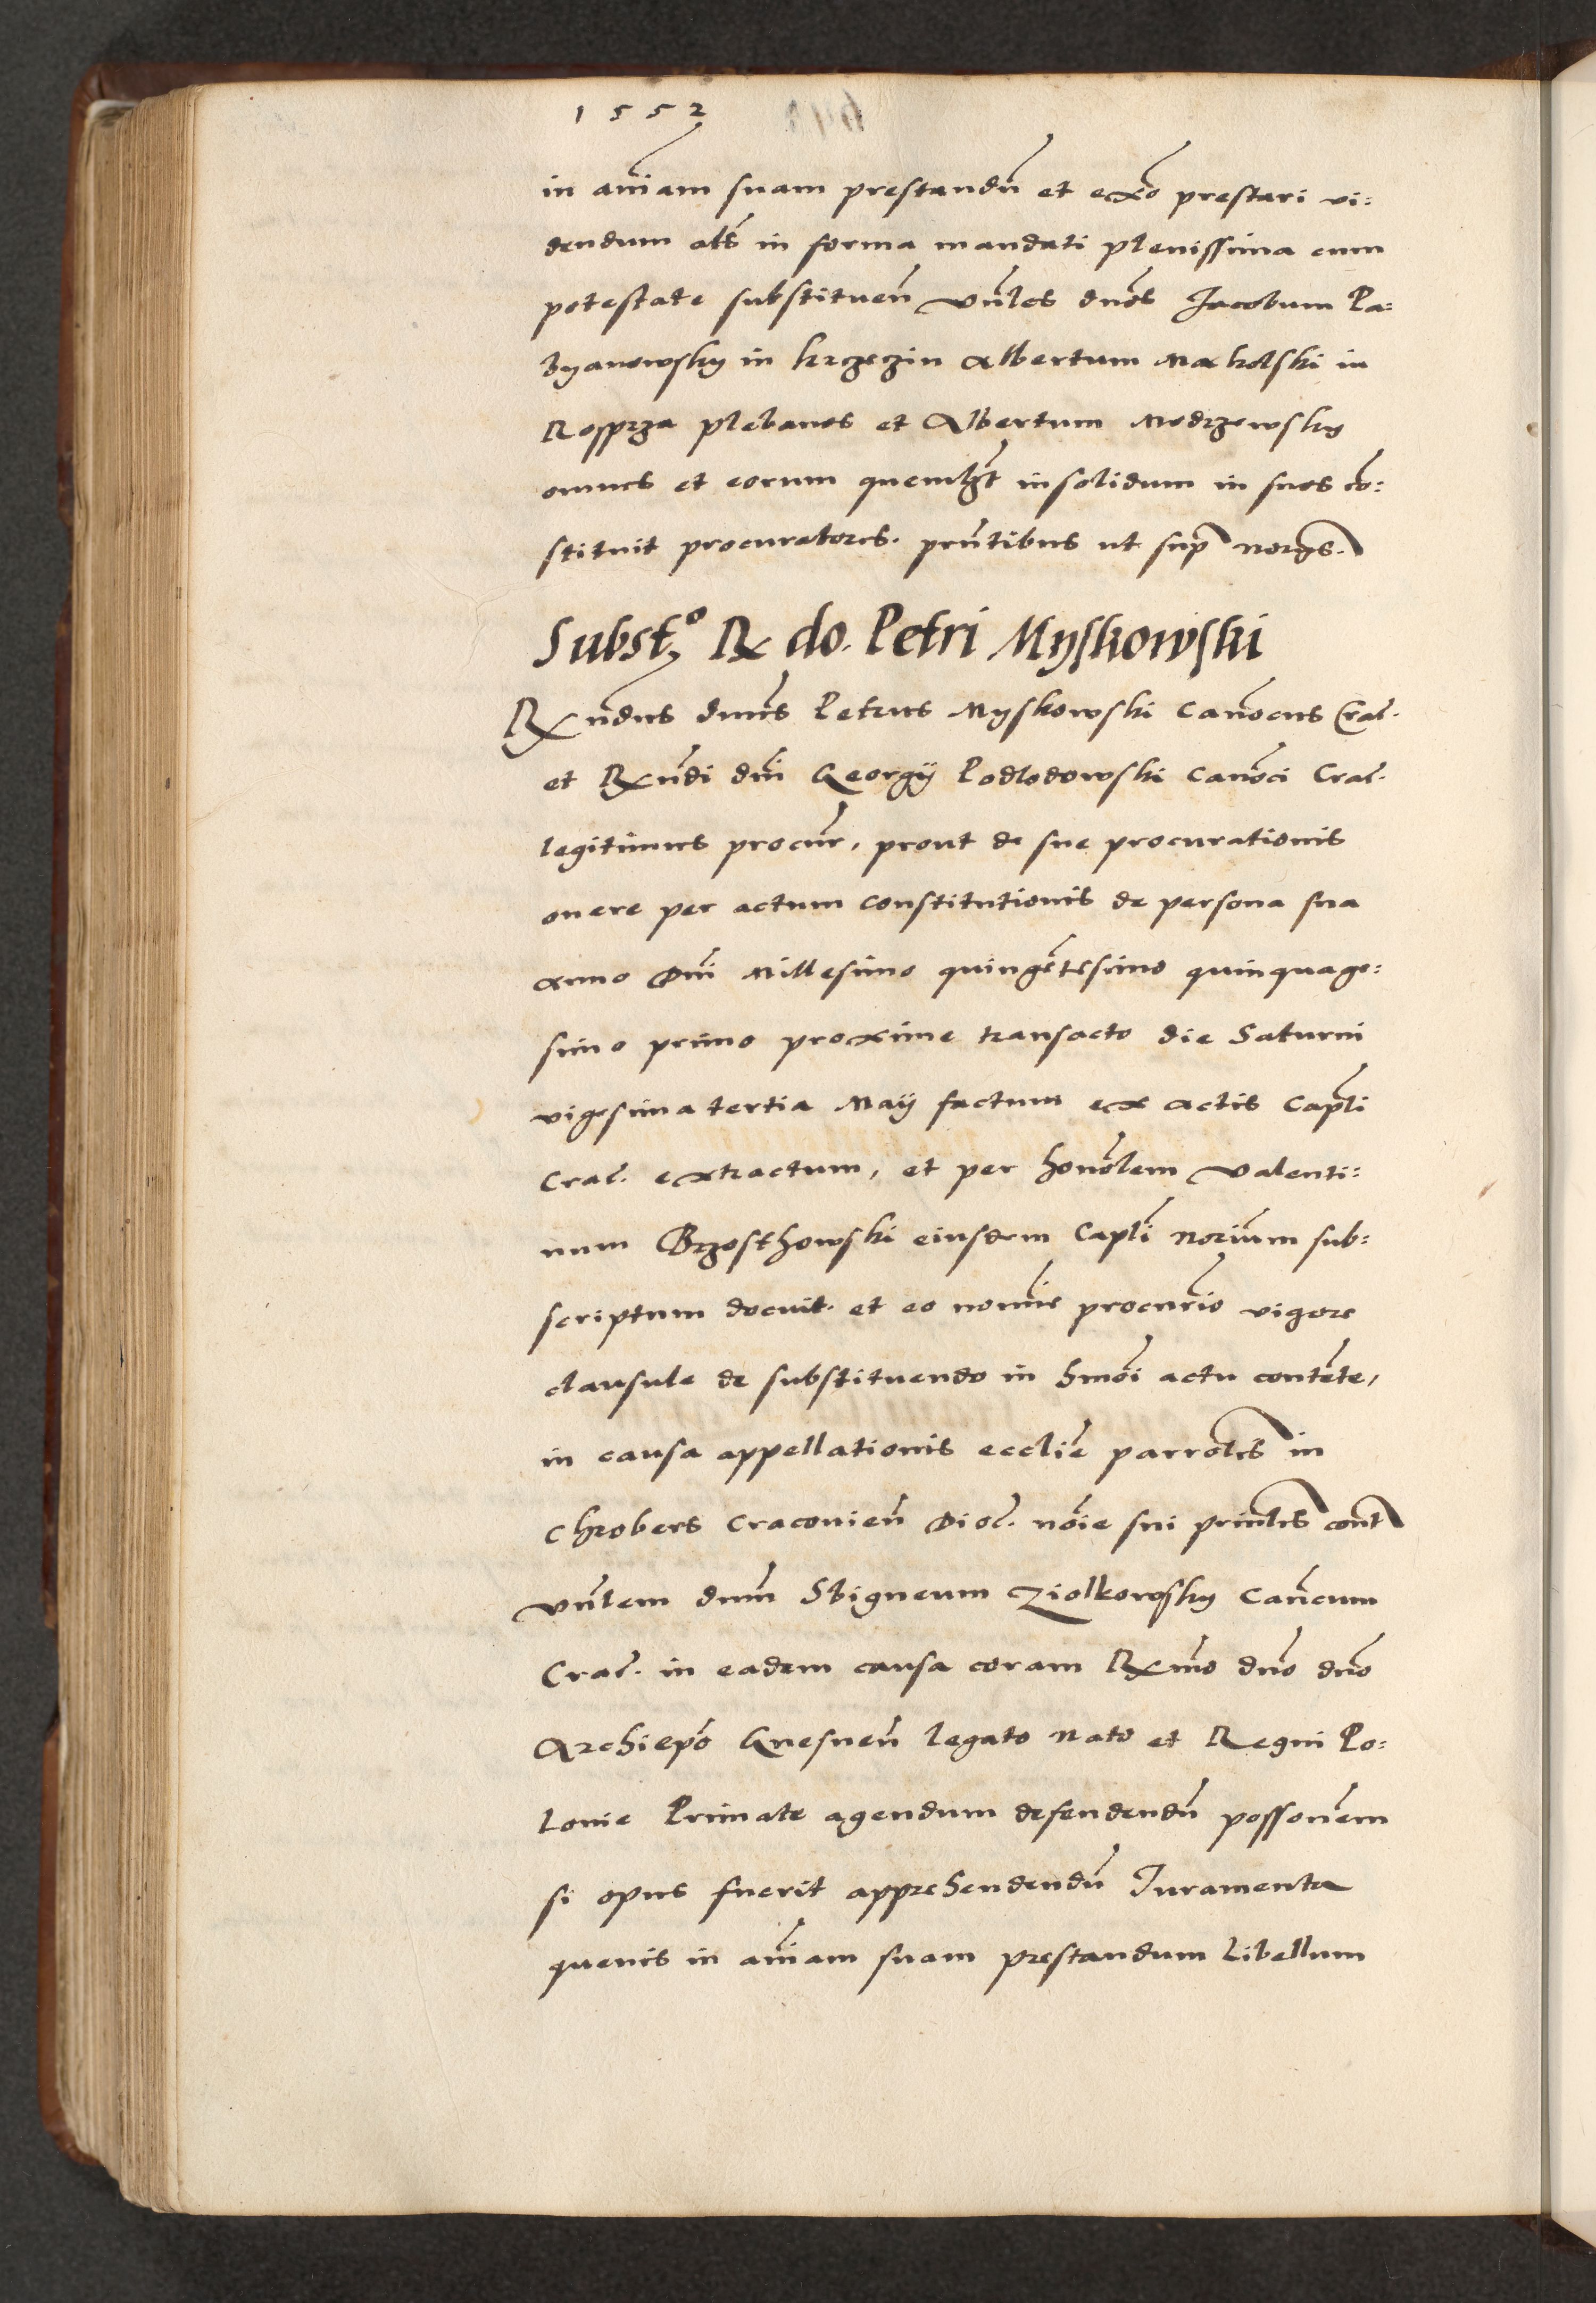 1552
in aniam suam prestandu et exo prestari vi:
dendum als in forma mandati plenissima cum
potestate substituen vnles dnos Jacobum Pa:
byanowsky in krzeczin Albertum Makolski in
Rosprza plebanos et Albertum Modrzewsky
omnes et eorum quemlibet insolidum in suos co:
stituit procuratores. pntibus ut sup
Subst.º R do. Petri Myskowski
Rndus dnus Petrus Myskowski Canocus Crac.
et Rndi dni Georgij Podlodowski Canoci Crac.
legitimus procur, prout de sue procurationis
onere per actum constitutionis de persona sua
Anno Dni Millesimo quingetesimo quinquage:
simo primo proxime transacto die Saturni
vigesima tertia Maij factum ex actis Capli
Crac. extractum, et per honolem Valenti:
num Brzosthowski eiusdem Capli norium sub:
scriptum docuit. et eo nomie procurio vigore
clausule de substituendo in hmoi actu contete,
in causa appellationis ecclie parrolis in
Chrobers Cracovien Dioc. noie sui prinlis cont
vnlem dnum Sbigneum Ziolkowsky Cancum
Crac. in eadem causa coram Rmo dno dno
Archiepo Gnesnen legato Nato et Regni Po:
lonie Primate agendum defendendu possonem
si opus fuerit apprehendendu Juramenta
quevis in aniam suam prestandum Libellum